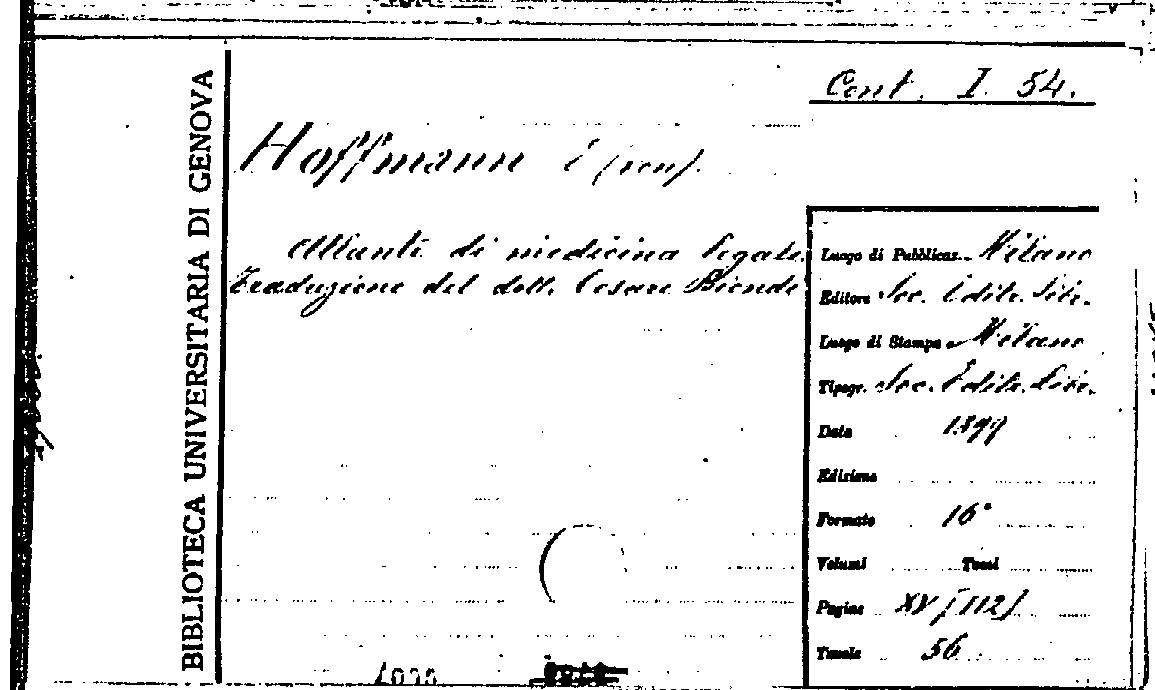 BIBLIOTECA UNIVERSITARIA DI GENOVA
Cont. I. 54.
Hoffmann E (von).
Atlanti di medicina legale.
Traduzione del dott. Cesare Biondi
Luogo di Pubblicaz. Milano
Editore Soc. Edit. Libr.
Luogo di Stampa Milano
Tipogr. Soc. Edit. Libr.
Data 1899
Edizione
Formato 16°
Volumi Tomi
Pagine XV [112]
Tavole 56